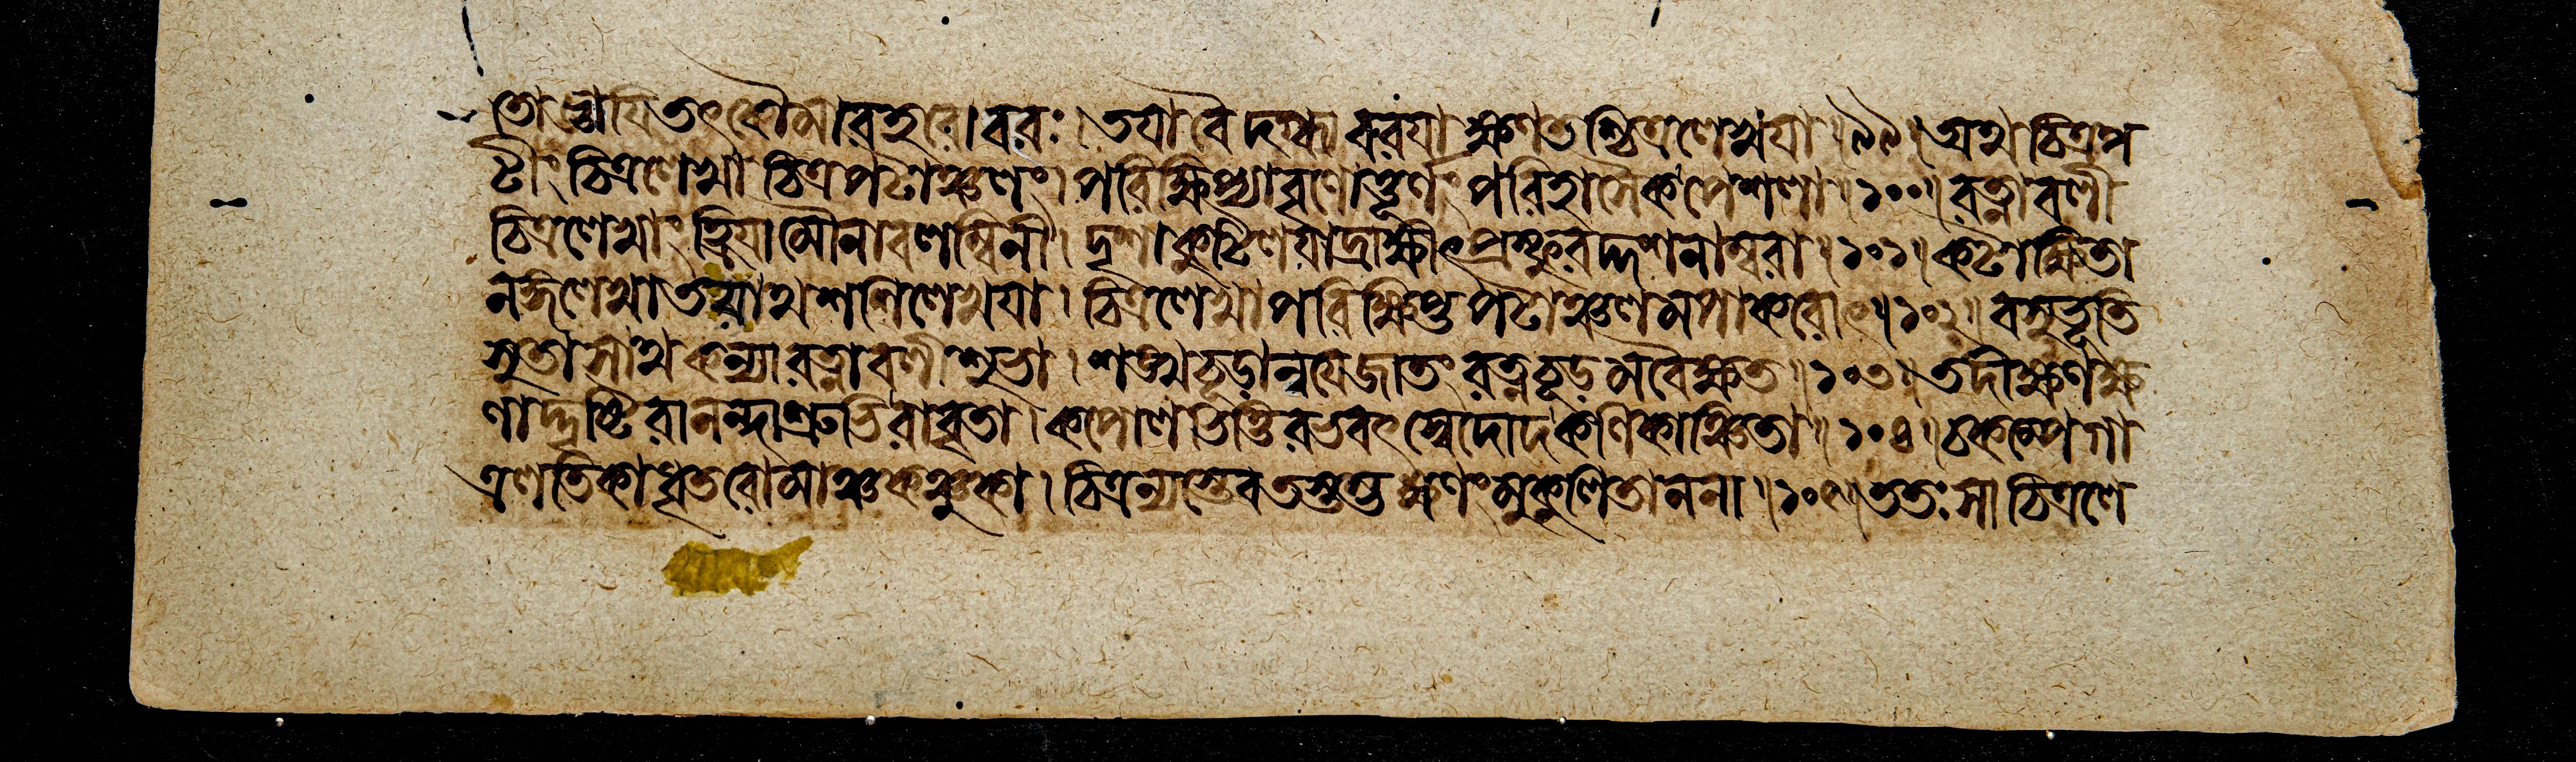 তোজ্ঞায়ি তৎকৌমারহরো বরঃ। তয়া বৈদগ্ধ্যবরয়া ক্ষণতশ্চিত্রলেখয়া॥৯৯॥ অথ চিত্রপ
টীং চিত্রলেখা চিত্রপটাঞ্চলং। পরিক্ষিপ্যাবৃণোত্তূর্ণং পরিহাসৈকপেশলা॥১০০॥ রত্নাবলী
চিত্রলেখাং হ্রিয়া মৌনাবলম্বিনী। দৃশা কুটিলয়াদ্রাক্ষীৎ প্রস্ফুরদ্দশনাম্বরা॥১০১॥ কটাক্ষিতা
নঙ্গলেখা তয়াথ শশিলেখয়া। চিত্রলেখাপরিক্ষিপ্ত পটাঞ্চলমপাকরোৎ॥১০২॥ বসুভূতি
সুতা সাথ কন্যা রত্নাবলী শুভা। শঙ্খচূড়ান্বয়ে জাতং রত্নচূড়মবৈক্ষত॥১০৩॥ তদীক্ষণক্ষ
ণাদ্দৃষ্টিরানন্দাশ্রুভিরাবৃতা। কপোলভিত্তিরভবৎ স্বেদোদকণিকাঞ্চিতা॥১০৪॥ চকম্পে গা
ত্রলতিকা ধৃতরোমাঞ্চকঞ্চুকা। চিত্রন্যস্তেব তস্তম্ভ ক্ষণং মুকুলিতাননা॥১০৫॥ ততঃ সা চিত্রলে